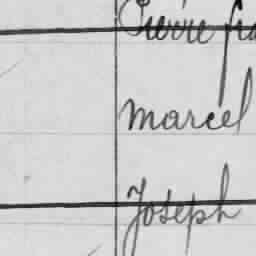 Pierre fra
marcel
Joseph